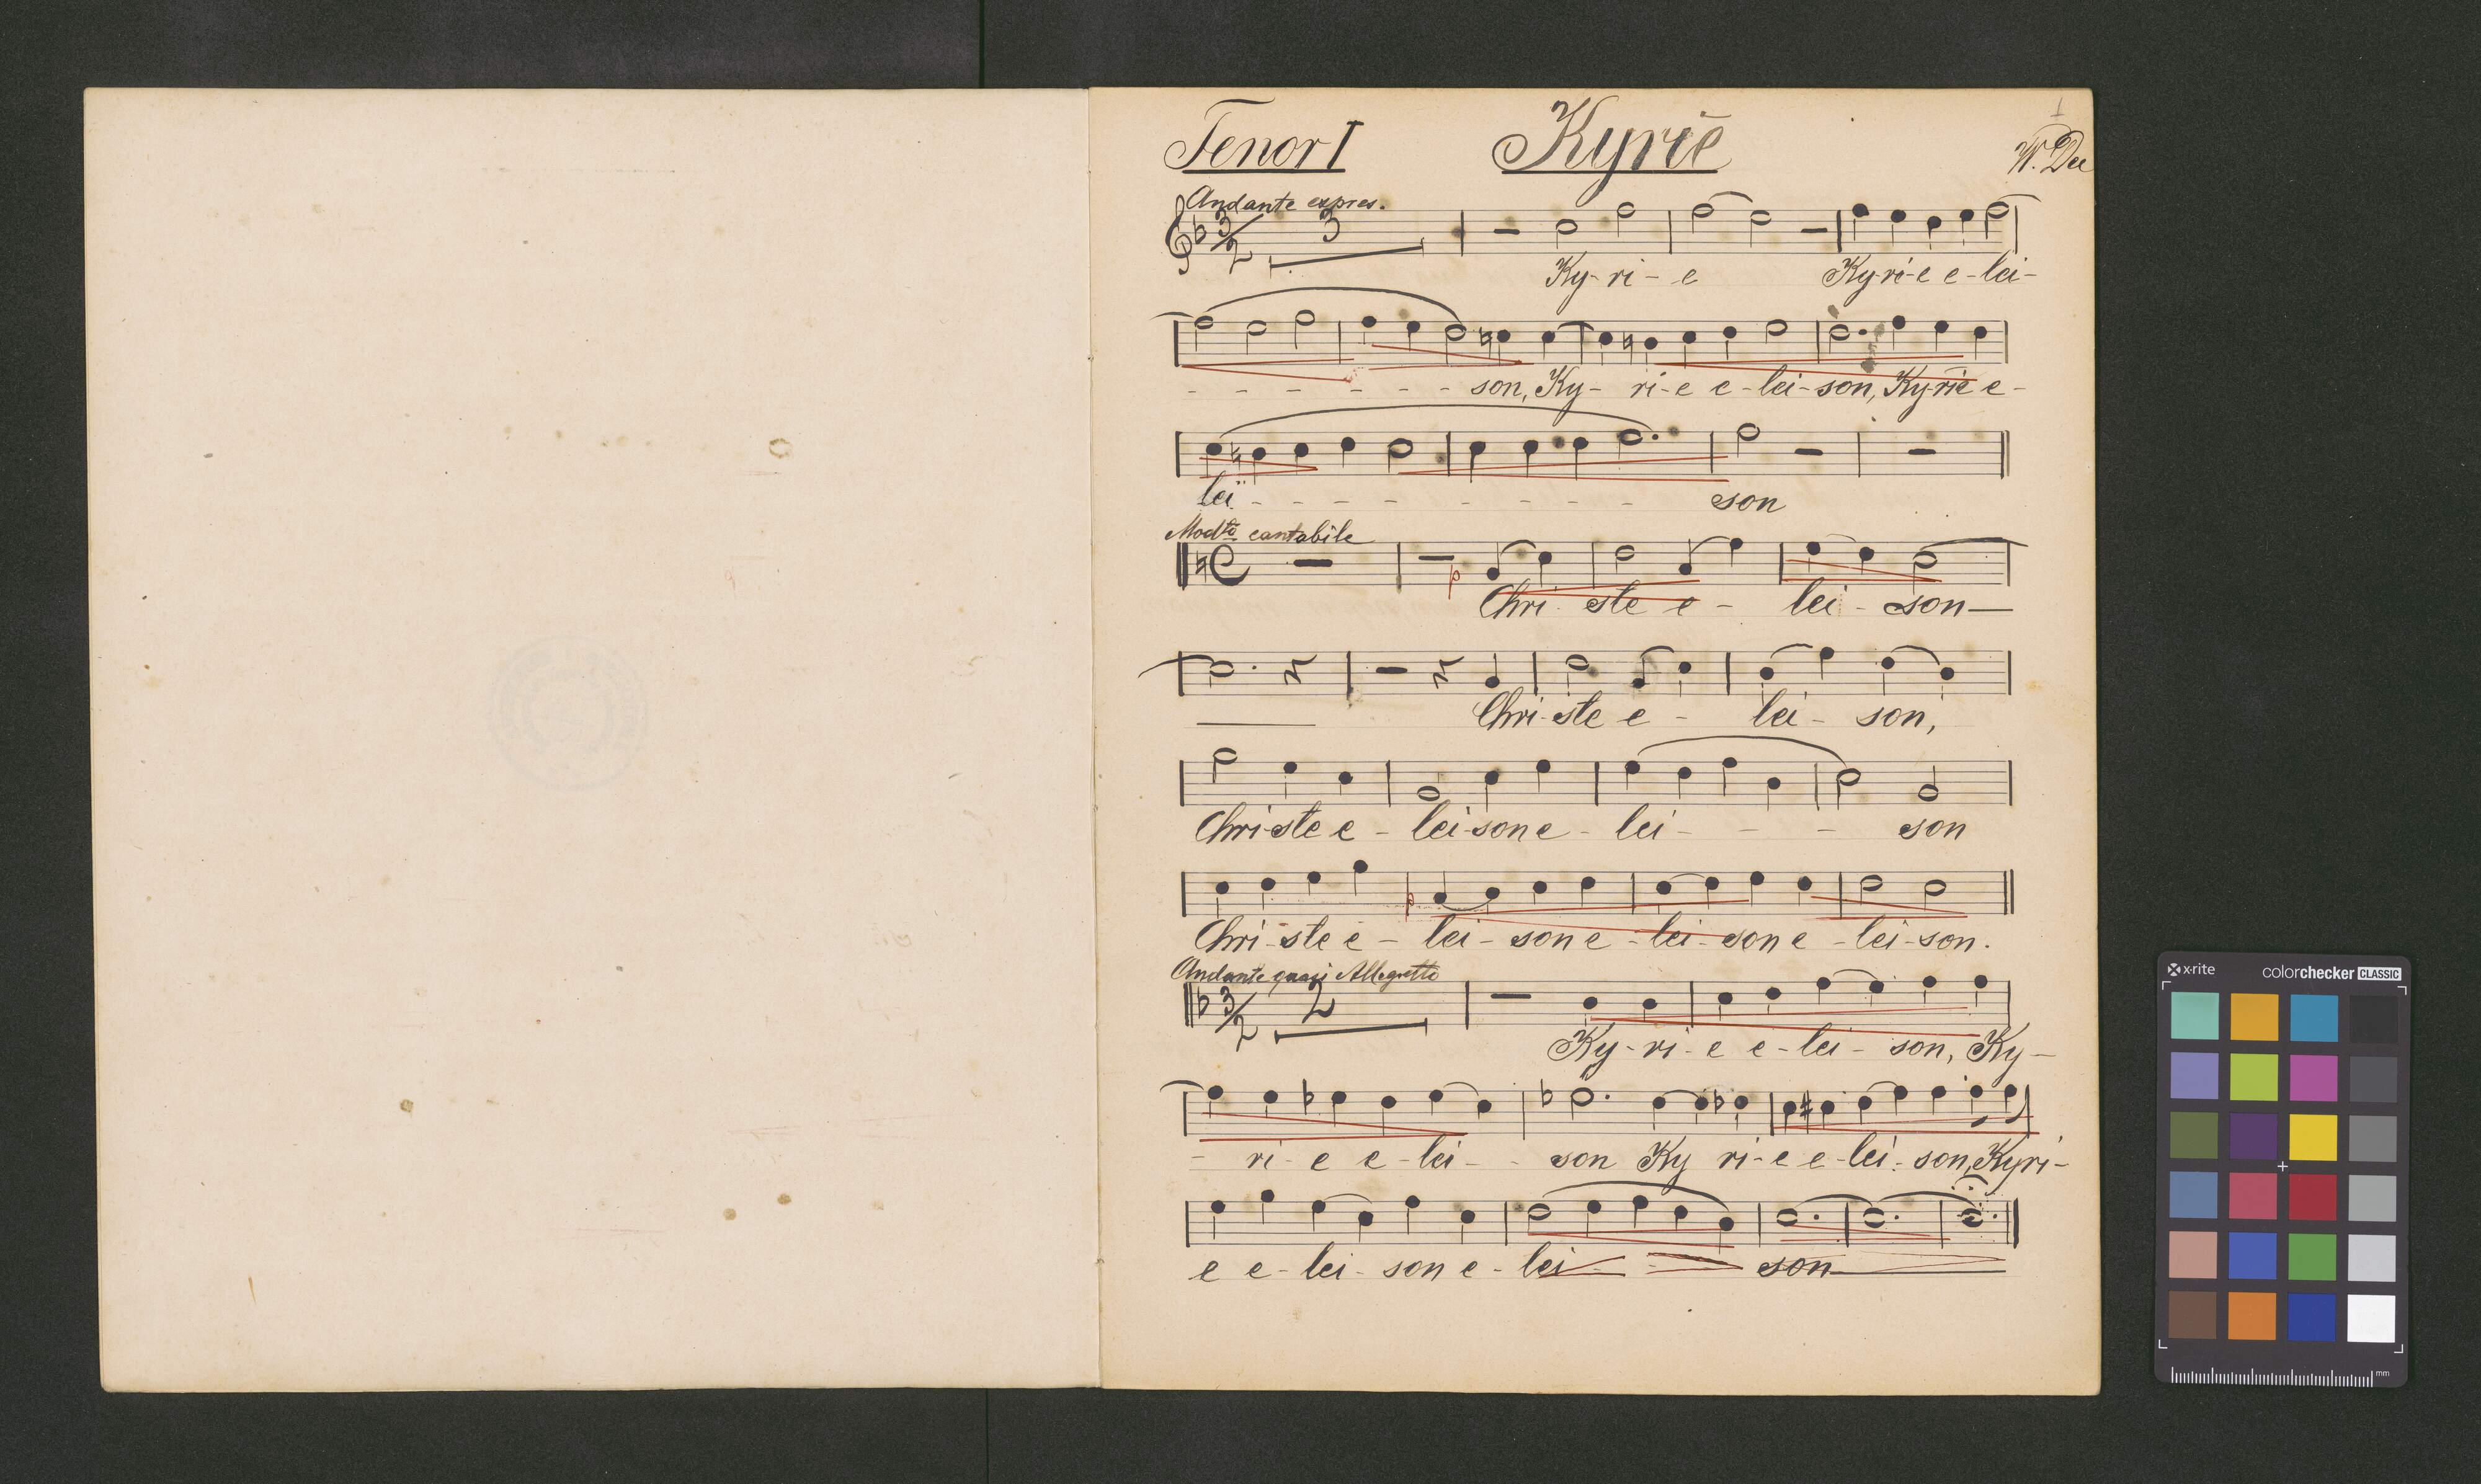 1
Tenor I Kyrie W. Dee
Andante expres.
3
2 3
Ky- ri - e Ky-ri-e e-lei-
- - - - - - son, Ky- ri-e e-lei-son, Ky-rie e-
lei - - - - - - - - son
Modto cantabile
p
Chri- ste e - lei - son
Chri-ste e - lei - son,
Chri-ste e - lei-son e - lei - - - son
p
Chri-ste e - lei - son e - lei- son e - lei-son.
Andante quasi Allegretto
3
2 2
Ky-ri-e e-lei- son, Ky-
- ri- e e-lei- - son Ky ri-e e-lei- son, Kyri-
e e-lei- son e - lei - - son
x-rite colorchecker CLASSIC
mm